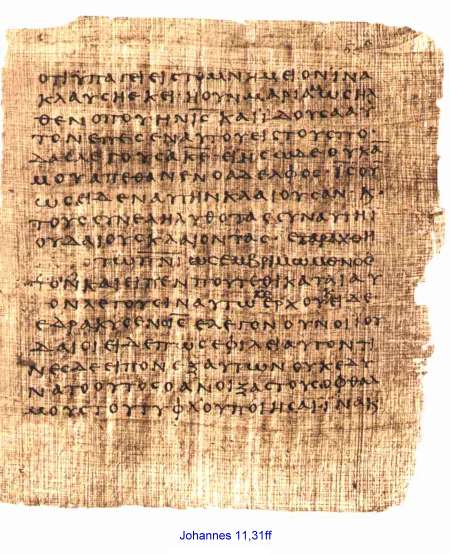 ΟΤΙ ΥΠΑΓΕΙ ΕΙϹ ΤΟ ΜΝΗΜΕΙΟΝ ΙΝΑ
ΚΛΑΥϹΗ ΕΚΕΙ· Η ΟΥΝ ΜΑΡΙΑ ΩϹ ΗΛ
ΘΕΝ ΟΠΟΥ ΗΝ ΙϹ ΚΑΙ ΙΔΟΥϹΑ ΑΥ
ΤΟΝ ΕΠΕϹΕΝ ΑΥΤΟΥ ΕΙϹ ΤΟΥϹ ΠΟ
ΔΑϹ ΛΕΓΟΥϹΑ ΚΕ ΕΙ ΗϹ ΩΔΕ ΟΥΚ Α
ΜΟΥ ΑΠΕΘΑΝΕΝ Ο ΑΔΕΛΦΟϹ· ΙϹ ΟΥ
ΩϹ ΕΙΔΕΝ ΑΥΤΗΝ ΚΛΑΙΟΥϹΑΝ· Κ
ΤΟΥϹ ϹΥΝΕΛΗΛΥΘΟΤΑϹ ϹΥΝ ΑΥΤΗ Ι
ΟΥΔΑΙΟΥϹ ΚΛΑΙΟΝΤΑϹ· ΕΤΑΡΑΧΘΗ
ΤΩ ΠΝΙ ΩϹ ΕΜΒΡΙΜΩΜΕΝΟϹ
ΚΑΙ ΕΙΠΕΝ ΠΟΥ ΑΥ
ΤΟΝ ΛΕΓΟΥϹΙΝ ΑΥΤΩ ΚΕ ΕΡΧΟΥ ΙΔΕ
ΕΔΑΚΡΥϹΕΝ Ο ΙϹ ΕΛΕΓΟΝ ΟΥΝ ΟΙ ΙΟΥ
ΔΑΙΟΙ ΕΙΔΕ ΠΩϹ ΕΦΙΛΕΙ ΑΥΤΟΝ ΤΙ
ΝΕϹ ΔΕ ΕΙΠΟΝ ΕΞ ΑΥΤΩΝ ΟΥΚ ΕΔΥ
ΝΑΤΟ ΟΥΤΟϹ Ο ΑΝΟΙΞΑϹ ΤΟΥϹ ΟΦΘΑΛ
ΜΟΥϹ ΤΟΥ ΤΥΦΛΟΥ ΠΟΙΗϹΑΙ ΙΝΑ Κ
Johannes 11,31ff